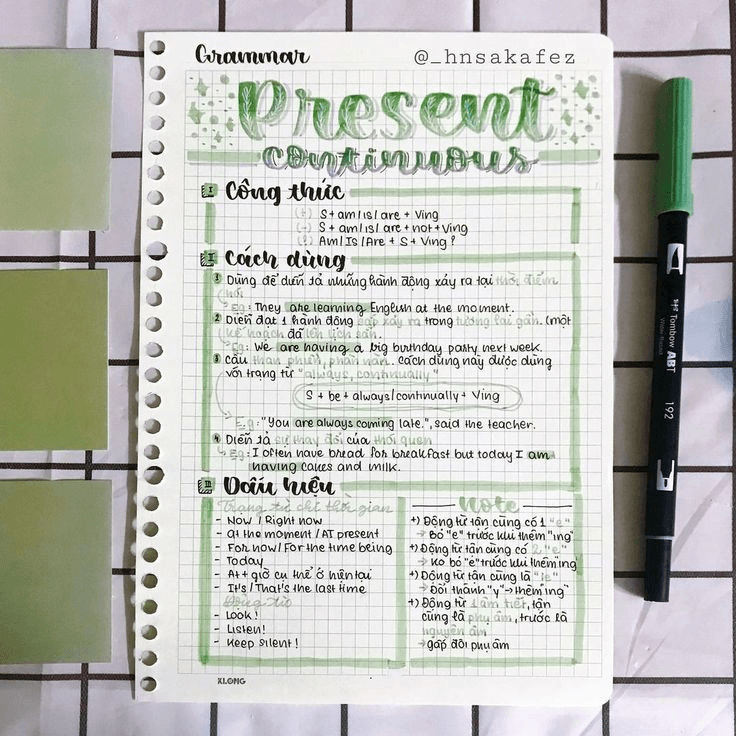 Grammar
@_hnsakafez
Present
continuous
I Công thức
(+) S + am / is / are + Ving
(-) S + am / is / are + not + Ving
(?) Am / Is / Are + S + Ving ?
II Cách dùng
1 Dùng để diễn tả những hành động xảy ra tại thời điểm
nói
Eg: They are learning English at the moment.
2 Diễn đạt 1 hành động sắp xảy ra trong tương lai gần. (một
kế hoạch đã lên lịch sẵn.
Eg: We are having a big birthday party next week.
3 Câu than phiền, phàn nàn. cách dùng này được dùng
với trạng từ "always, continually"
S + be + always / continually + Ving
Eg: "You are always coming late.", said the teacher.
4 Diễn tả sự thay đổi của thói quen
Eg: I often have bread for breakfast but today I am
having cakes and milk.
III Dấu hiệu
Trạng từ chỉ thời gian
- Now / Right now
- At the moment / AT present
- For now / For the time being
- Today
- At + giờ cụ thể ở hiện tại
- It's / That's the last time
Động từ
- Look!
- Listen!
- Keep silent!
Note
+) Động từ tận cùng có 1 "e"
→ Bỏ "e" trước khi thêm "ing"
+) Động từ tận cùng có 2 "e"
→ Ko bỏ "e" trước khi thêm "ing"
+) Động từ tận cùng là "ie"
→ Đổi thành "y" → thêm "ing"
+) Động từ 1 âm tiết, tận
cùng là phụ âm, trước là
nguyên âm
→ gấp đôi phụ âm
KLONG
Tombow ABT
192